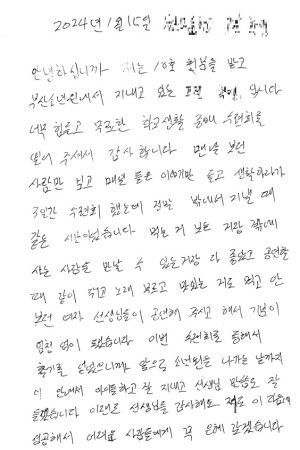 2024년 1월 15일
안녕하십니까 저는 10호 처분을 받고
부산소년원에서 지내고 있는 입니다
너무 힘들고 무료한 학교생활 중에 수련회를
열어 주셔서 감사합니다 맨날 보던
사람만 보고 매일 듣은 이야기만 듣고 생활하다가
3일간 수련회 했는데 정말 밖에서 지낼 때
같은 시간이었습니다 먹는 거 보는 거랑 밖에
사는 사람을 만날 수 있는거랑 다 좋았고 공연할
때 같이 뛰고 노래 부르고 맛있는 거도 먹고 안
보던 여자 선생님들이 공연해 주시고 해서 기분이
엄청 많이 좋았습니다 이번 수련회를 통해서
용기를 얻었으니까 앞으로 소년원을 나가는 날까지
이 안에서 아이들하고 잘 지내고 선생님 말씀도 잘
듣겠습니다 이랜드 선생님들 감사해요 저도 이 다음에
성공해서 어려운 사람들에게 꼭 은혜 갚겠습니다